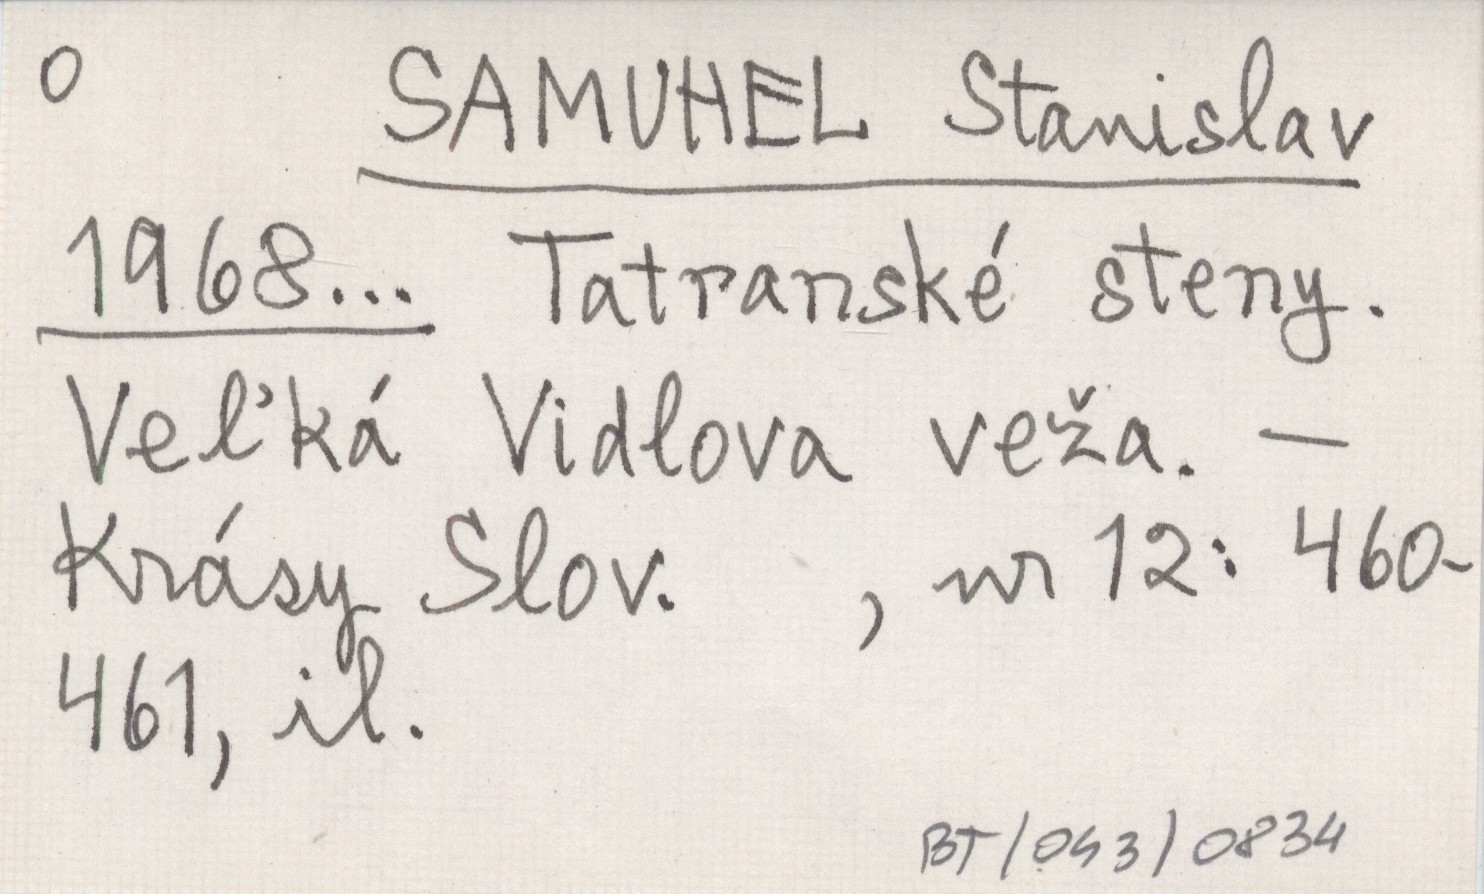 O SAMUHEL Stanislav
1968... Tatranské steny.
Veľká Vidlova veža. —
Krásy Slov. , nr 12: 460-
461, il.
BT/043/0834